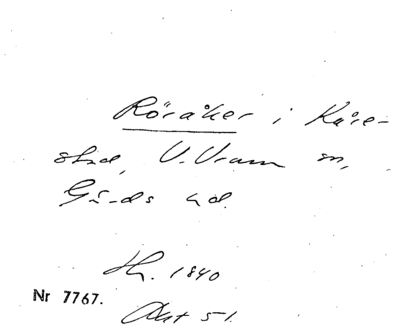 Röråker i Kåre-
stad, V. Vram sn,
Gärds hd.
Hr. 1840
Nr 7767.
Akt 51.